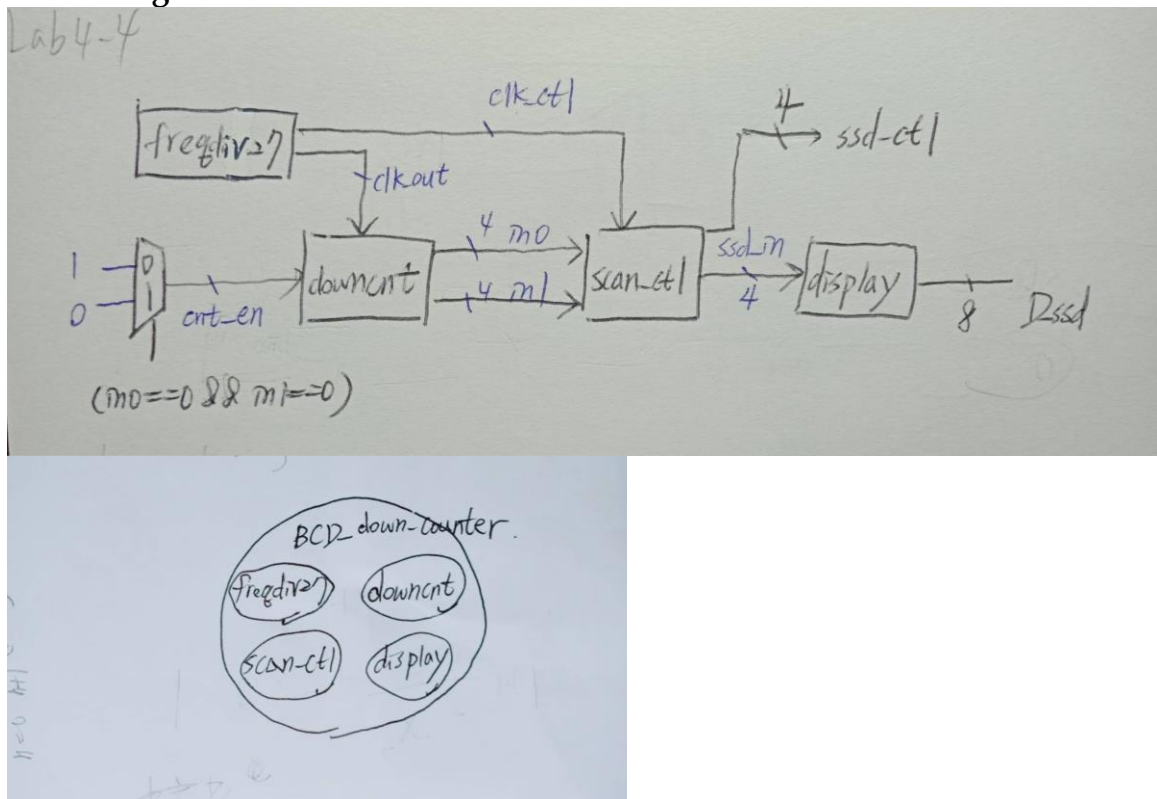 Lab 4-4
clk_ctl
4
ssd-ctl
freqdiv27
clkout
1
0
0
1
cnt_en
downcnt
4 in0
4 in1
scan_ctl
ssd_in
4
display
8
D_ssd
(in0==0 && in1==0)
BCD_down-counter.
freqdiv27
downcnt
scan-ctl
display